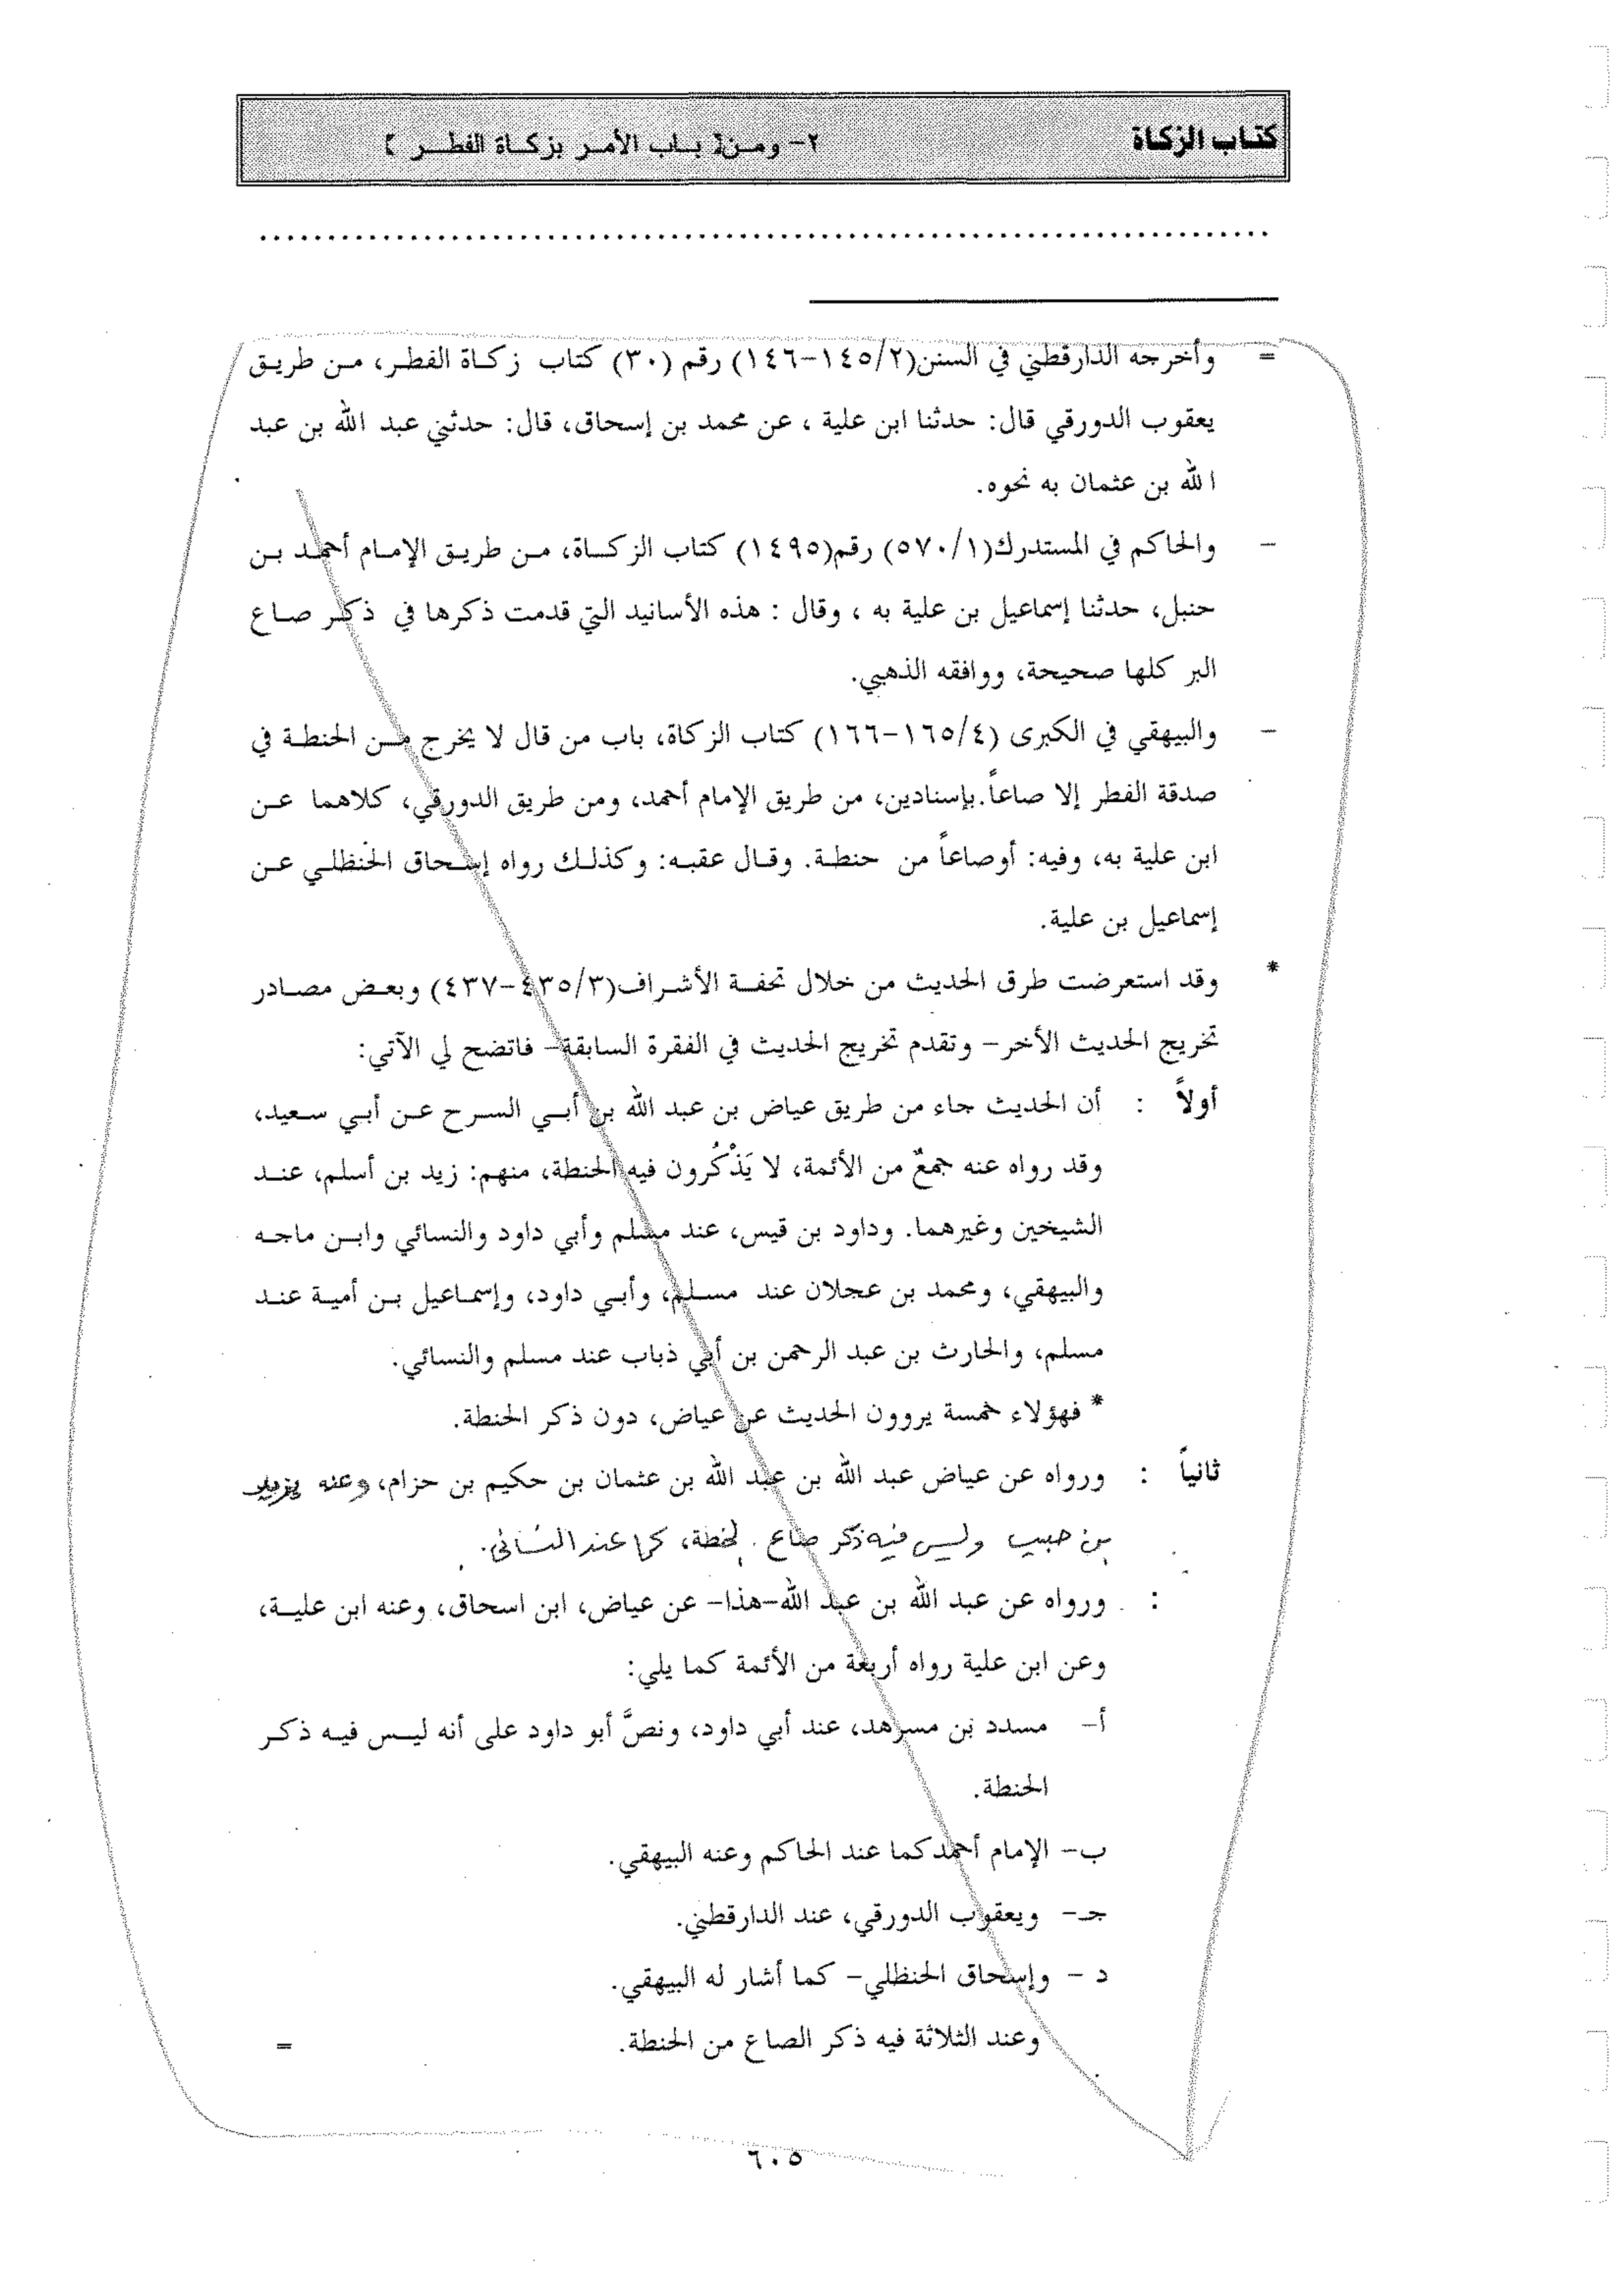 كتاب الزكاة
٢- ومن [ باب الأمر بزكاة الفطر ]
................................................................
= وأخرجه الدارقطني في السنن(١٤٥/٢-١٤٦) رقم (٣٠) كتاب زكاة الفطر، من طريق
يعقوب الدورقي قال: حدثنا ابن علية ، عن محمد بن إسحاق، قال: حدثني عبد الله بن عبد
الله بن عثمان به نحوه.
- والحاكم في المستدرك(٥٧٠/١) رقم(١٤٩٥) كتاب الزكاة، من طريق الإمام أحمد بن
حنبل، حدثنا إسماعيل بن علية به ، وقال : هذه الأسانيد التي قدمت ذكرها في ذكر صاع
البر كلها صحيحة، ووافقه الذهبي.
- والبيهقي في الكبرى (١٦٥/٤-١٦٦) كتاب الزكاة، باب من قال لا يخرج من الحنطة في
صدقة الفطر إلا صاعاً.بإسنادين، من طريق الإمام أحمد، ومن طريق الدورقي، كلاهما عن
ابن علية به، وفيه: أوصاعاً من حنطة. وقال عقبه: وكذلك رواه إسحاق الحنظلي عن
إسماعيل بن علية.
* وقد استعرضت طرق الحديث من خلال تحفة الأشراف(٤٣٥/٣-٤٣٧) وبعض مصادر
تخريج الحديث الأخر- وتقدم تخريج الحديث في الفقرة السابقة- فاتضح لي الآتي:
أولاً : أن الحديث جاء من طريق عياض بن عبد الله بن أبي السرح عن أبي سعيد،
وقد رواه عنه جمعٌ من الأئمة، لا يَذْكُرون فيه الحنطة، منهم: زيد بن أسلم، عند
الشيخين وغيرهما. وداود بن قيس، عند مسلم وأبي داود والنسائي وابن ماجه
والبيهقي، ومحمد بن عجلان عند مسلم، وأبي داود، وإسماعيل بن أمية عند
مسلم، والحارث بن عبد الرحمن بن أبي ذباب عند مسلم والنسائي.
* فهؤلاء خمسة يروون الحديث عن عياض، دون ذكر الحنطة.
ثانياً : ورواه عن عياض عبد الله بن عبد الله بن عثمان بن حكيم بن حزام، وعنه يزيد
بن حبيب وليس فيه ذكر صاع لحنطة، كما عند النسائي.
: ورواه عن عبد الله بن عبد الله-هذا- عن عياض، ابن اسحاق، وعنه ابن علية،
وعن ابن علية رواه أربعة من الأئمة كما يلي:
أ- مسدد بن مسرهد، عند أبي داود، ونصَّ أبو داود على أنه ليس فيه ذكر
الحنطة.
ب- الإمام أحمدكما عند الحاكم وعنه البيهقي.
جـ- ويعقوب الدورقي، عند الدارقطني.
د - وإسحاق الحنظلي- كما أشار له البيهقي.
وعند الثلاثة فيه ذكر الصاع من الحنطة.
=
٦٠٥